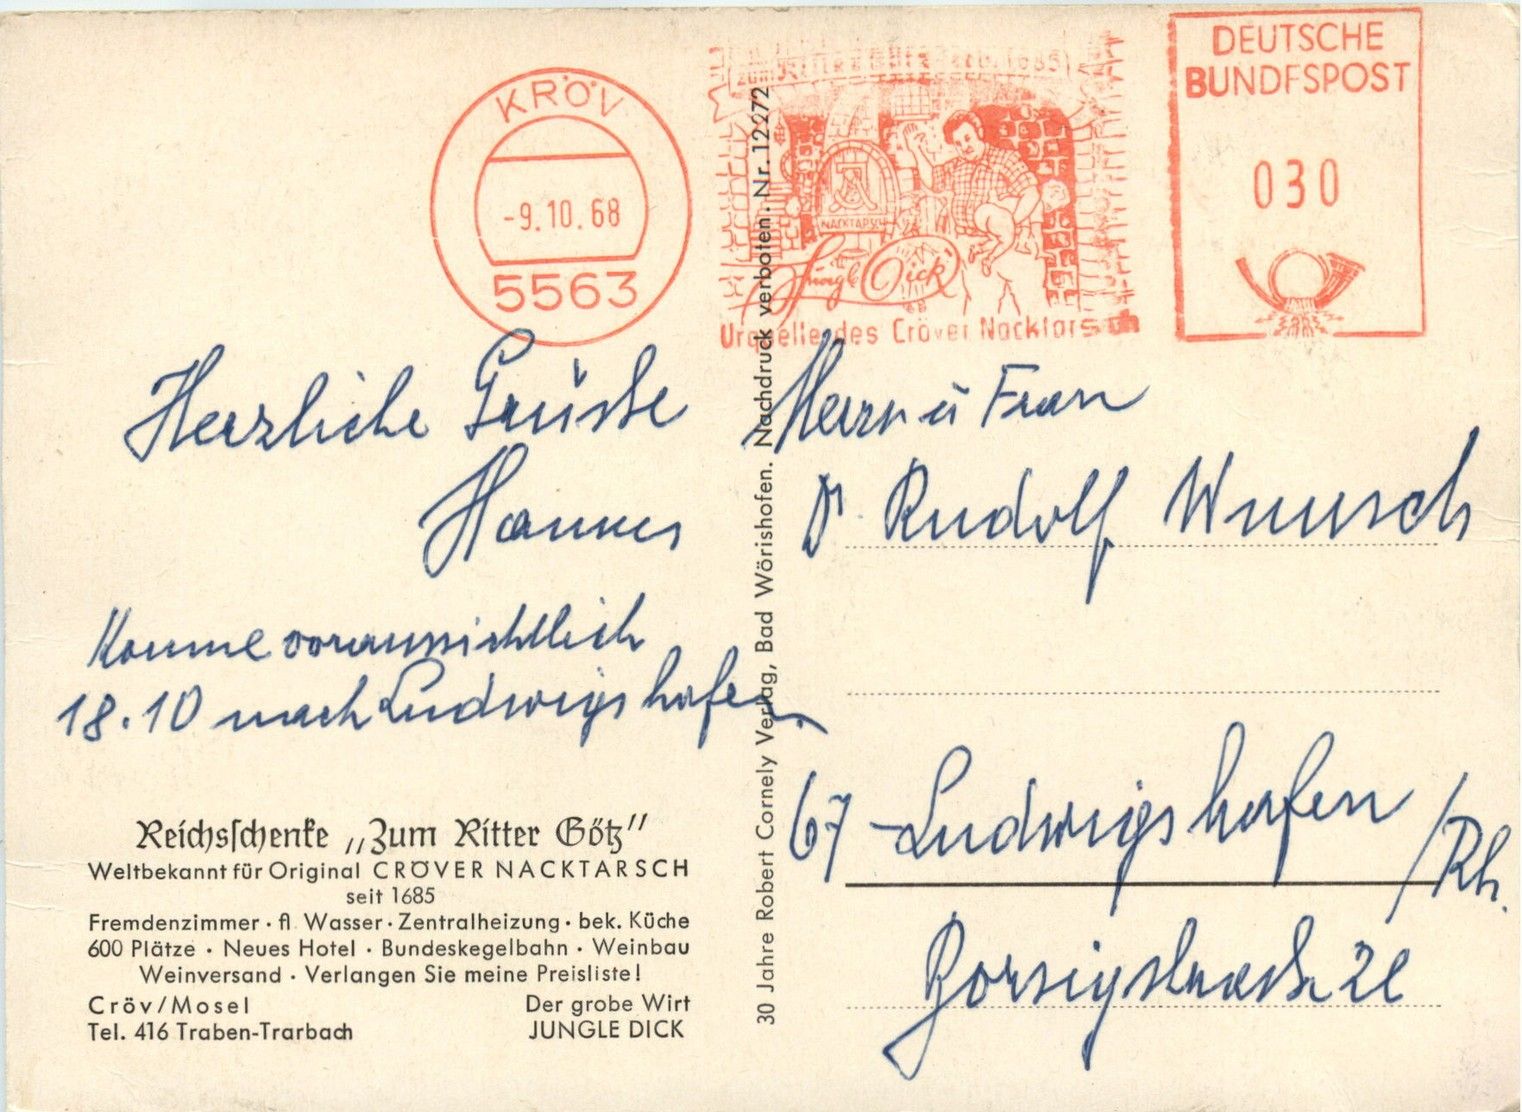 KRÖV
-9.10.68
5563
NACKTARSCH
Jungle Dick
Urquelle des Cröver Nacktarsch
DEUTSCHE
BUNDESPOST
030
Herzliche Grüsse
Hannes
Komme voraussichtlich
18.10 nach Ludwigshafen.
Reichsschenke „Zum Ritter Götz"
Weltbekannt für Original CRÖVER NACKTARSCH
seit 1685
Fremdenzimmer · fl Wasser · Zentralheizung · bek. Küche
600 Plätze · Neues Hotel · Bundeskegelbahn · Weinbau
Weinversand · Verlangen Sie meine Preisliste!
Cröv/Mosel Der grobe Wirt
Tel. 416 Traben-Trarbach JUNGLE DICK
30 Jahre Robert Cornely Verlag, Bad Wörishofen. Nachdruck verboten. Nr. 12272
Herrn u Frau
Dr. Rudolf Wunsch
67 Ludwigshafen /Rh.
Borsigstrasse